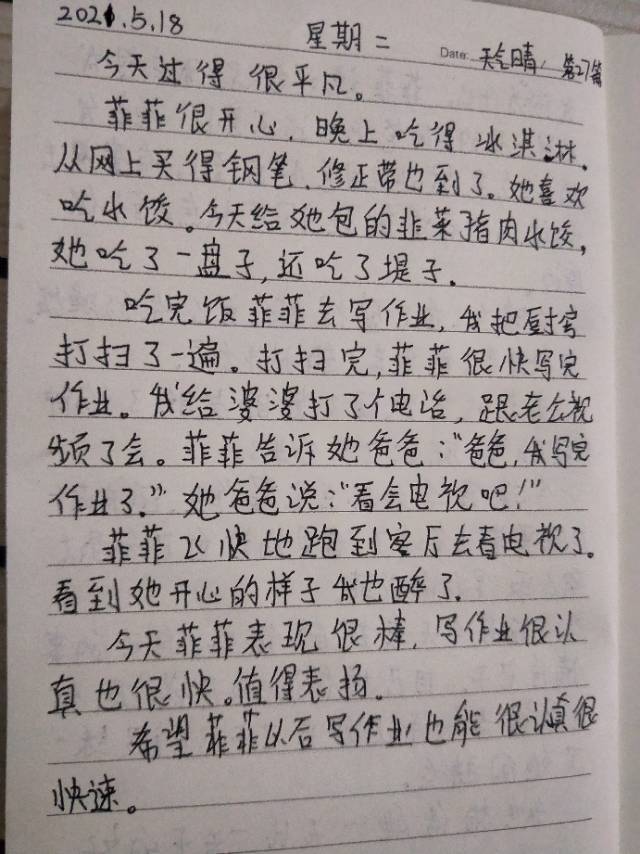 2021.5.18 星期二 Date: 天气晴 第27篇
今天过得很平凡。
菲菲很开心，晚上吃得冰淇淋。
从网上买得钢笔、修正带也到了。她喜欢
吃水饺。今天给她包的韭菜猪肉水饺，
她吃了一盘子，还吃了堤子。
吃完饭菲菲去写作业，我把厨房
打扫了一遍。打扫完，菲菲很快写完
作业。我给婆婆打了个电话，跟老公视
频了会。菲菲告诉她爸爸：“爸爸，我写完
作业了。”她爸爸说：“看会电视吧！”
菲菲飞快地跑到客厅去看电视了。
看到她开心的样子我也醉了。
今天菲菲表现很棒，写作业很认
真也很快。值得表扬。
希望菲菲以后写作业也能很认真很
快速。